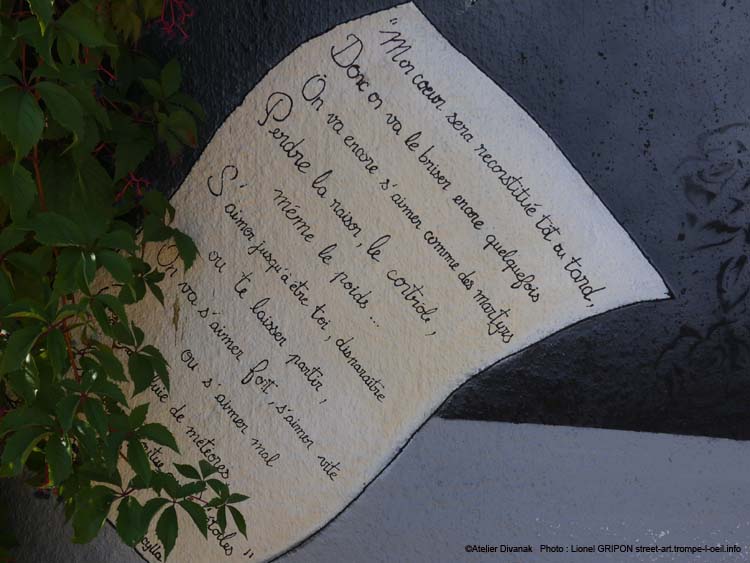 "Mon coeur sera reconstitué tôt ou tard,
Donc on va le briser encore quelquefois
On va encore s'aimer comme des martyrs
Perdre la raison, le contrôle,
même le poids...
S'aimer jusqu'à être toi, disparaître
ou te laisser partir,
On va s'aimer fort, s'aimer vite
ou s'aimer mal
pluie de météores,
toiles"
cylla
©Atelier Divanak Photo : Lionel GRIPON street-art.trompe-l-oeil.info